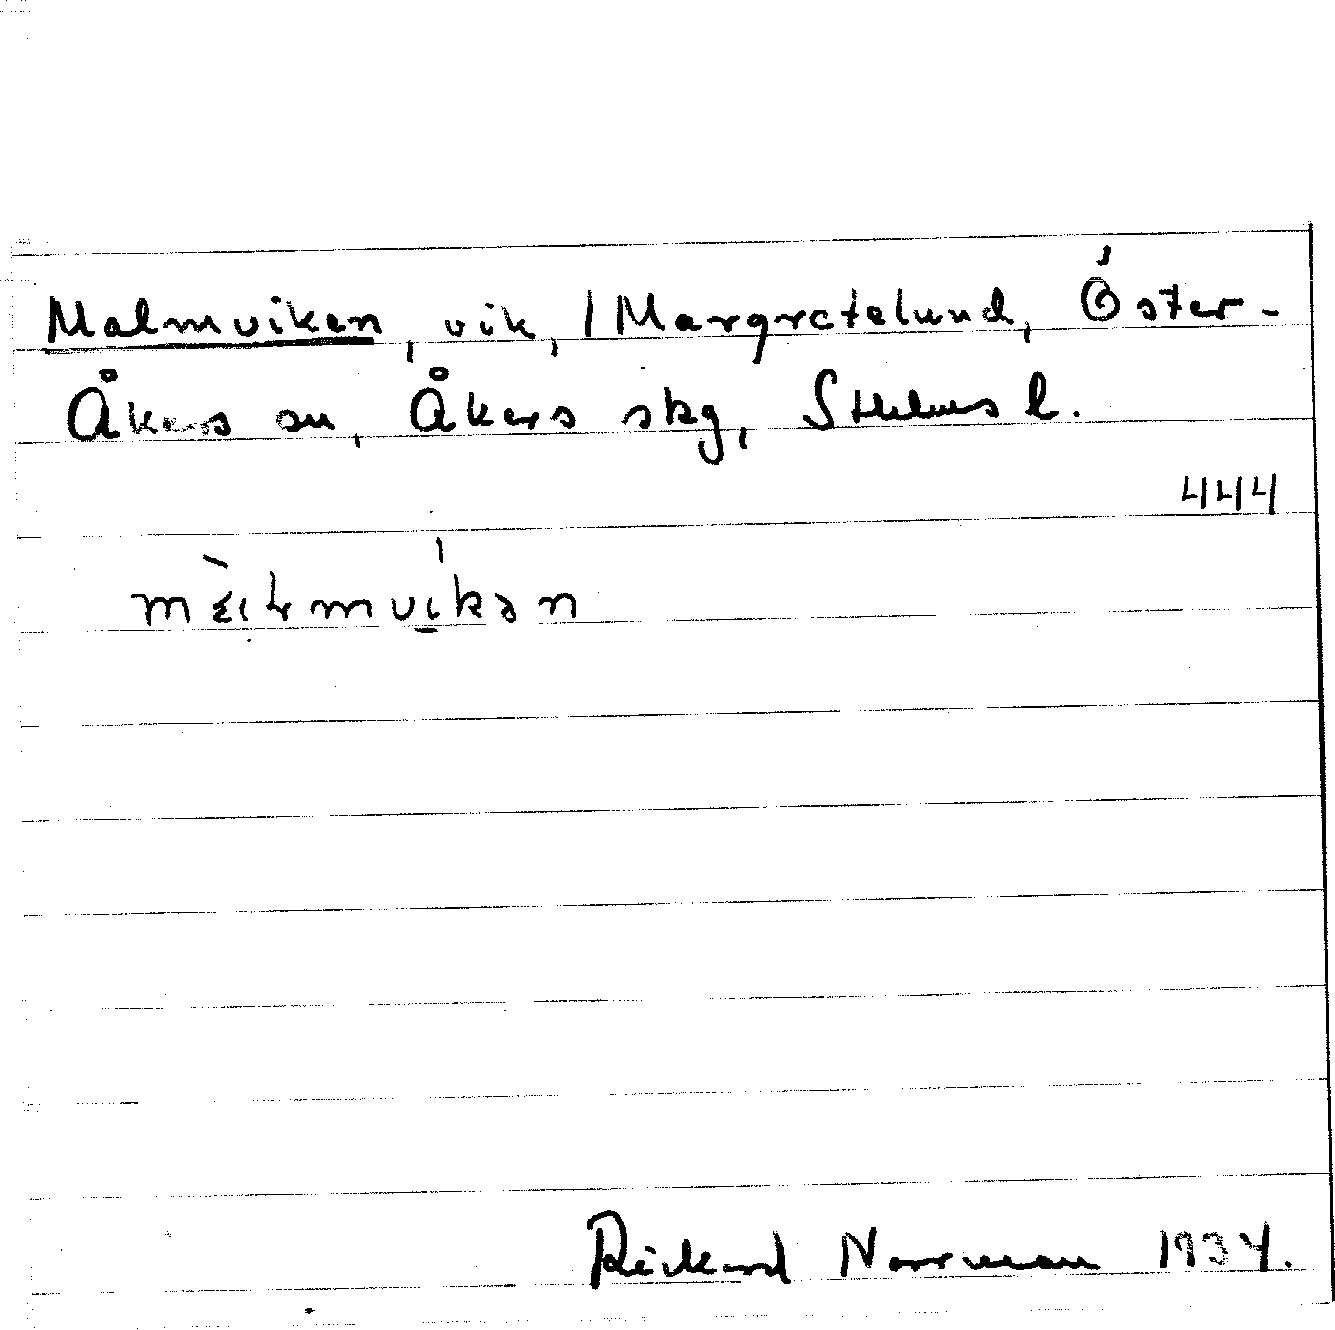 Malmviken, vik, / Margretelund, Öster-
Åkers sn, Åkers skg, Sthlms l.
444
Rickard Norrman 1934.